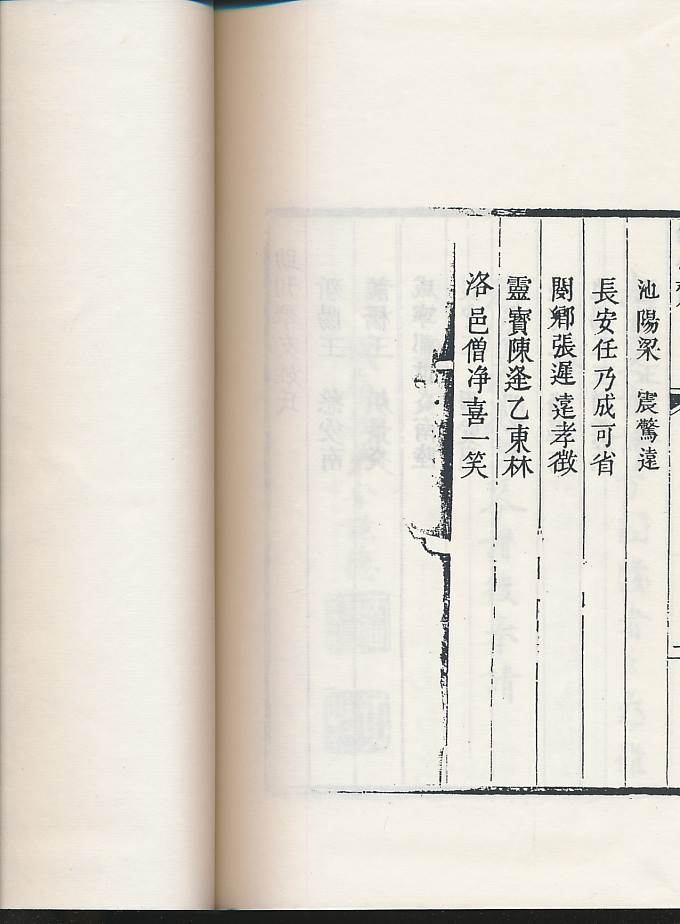 池陽梁 震驚遠
長安任乃成可省
閿鄉張遲遠孝徵
靈寳陳逢乙東林
洛邑僧净喜一笑